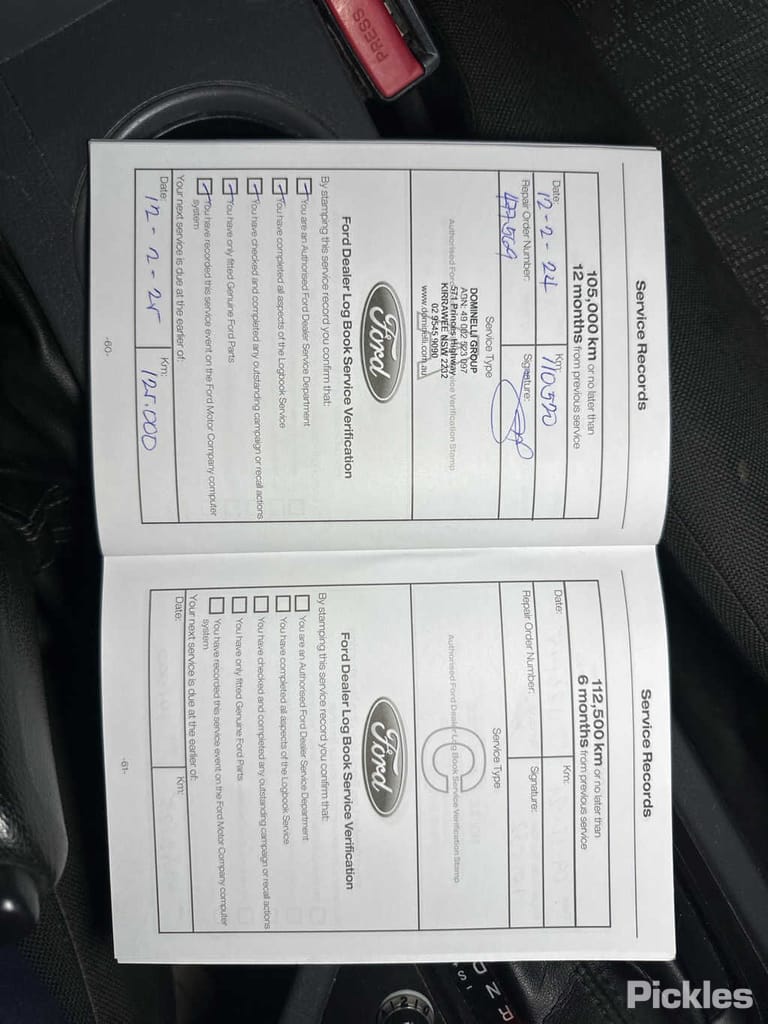 PRESS
Service Records
105,000 km or no later than
12 months from previous service
Date: 12-2-24
Km: 110520
Repair Order Number: 477569
Signature:
Service Type
DOMINELLI GROUP
ABN: 49 002 923 097
571 Princes Highway
KIRRAWEE NSW 2232
02 9545 9090
www.dominelli.com.au
Ford
Ford Dealer Log Book Service Verification
By stamping this service record you confirm that:
You are an Authorised Ford Dealer Service Department
You have completed all aspects of the Logbook Service
You have checked and completed any outstanding campaign or recall actions
You have only fitted Genuine Ford Parts
You have recorded this service event on the Ford Motor Company computer
system
Your next service is due at the earlier of:
Date: 12-2-25
Km: 125,000
-60-
Service Records
112,500 km or no later than
6 months from previous service
Date:
Km:
Repair Order Number:
Signature:
Service Type
C
Authorised Ford Dealer Log Book Service Verification Stamp
Ford
Ford Dealer Log Book Service Verification
By stamping this service record you confirm that:
You are an Authorised Ford Dealer Service Department
You have completed all aspects of the Logbook Service
You have checked and completed any outstanding campaign or recall actions
You have only fitted Genuine Ford Parts
You have recorded this service event on the Ford Motor Company computer
system
Your next service is due at the earlier of:
Date:
Km:
-61-
R
N
D
S
Pickles